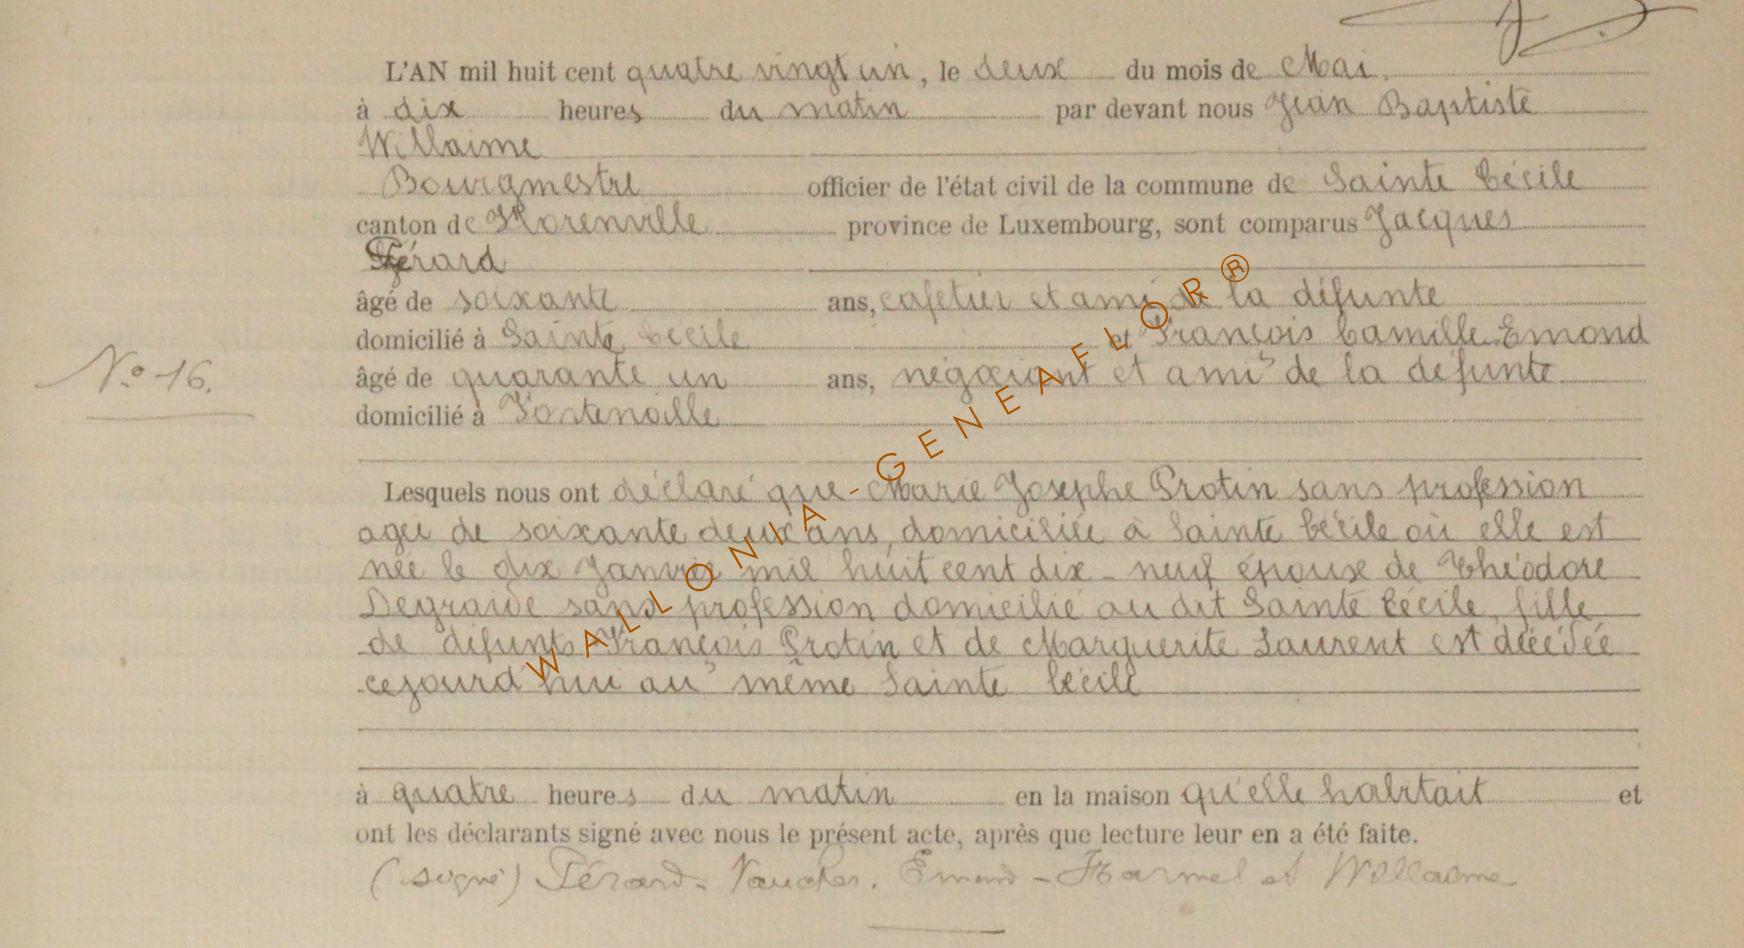 L'AN mil huit cent quatre vingt un, le deux du mois de Mai.
à dix heures du matin par devant nous Jean Baptiste
Willaime
Bourgmestre officier de l'état civil de la commune de Sainte Cécile
canton de Florenville province de Luxembourg, sont comparus Jacques
Gérard
âgé de soixante ans, cafetier et ami de la défunte
domicilié à Sainte Cécile et François Camille Emond
N.º 16.
âgé de quarante un ans, négociant et ami de la défunte
domicilié à Fontenoille
Lesquels nous ont déclaré que Marie Josephe Protin sans profession
agée de soixante deux ans, domiciliée à Sainte Cécile où elle est
née le dix Janvier mil huit cent dix-neuf épouse de Théodore
Degraide sans profession domicilié au dit Sainte Cécile, fille
de défunts François Protin et de Marguerite Laurent est décédée
cejourd'hui au même Sainte Cécile
à quatre heures du matin en la maison qu'elle habitait et
ont les déclarants signé avec nous le présent acte, après que lecture leur en a été faite.
(signé) Emond - Harmel et Willaime
WALLONIA-GENEAFLOR®